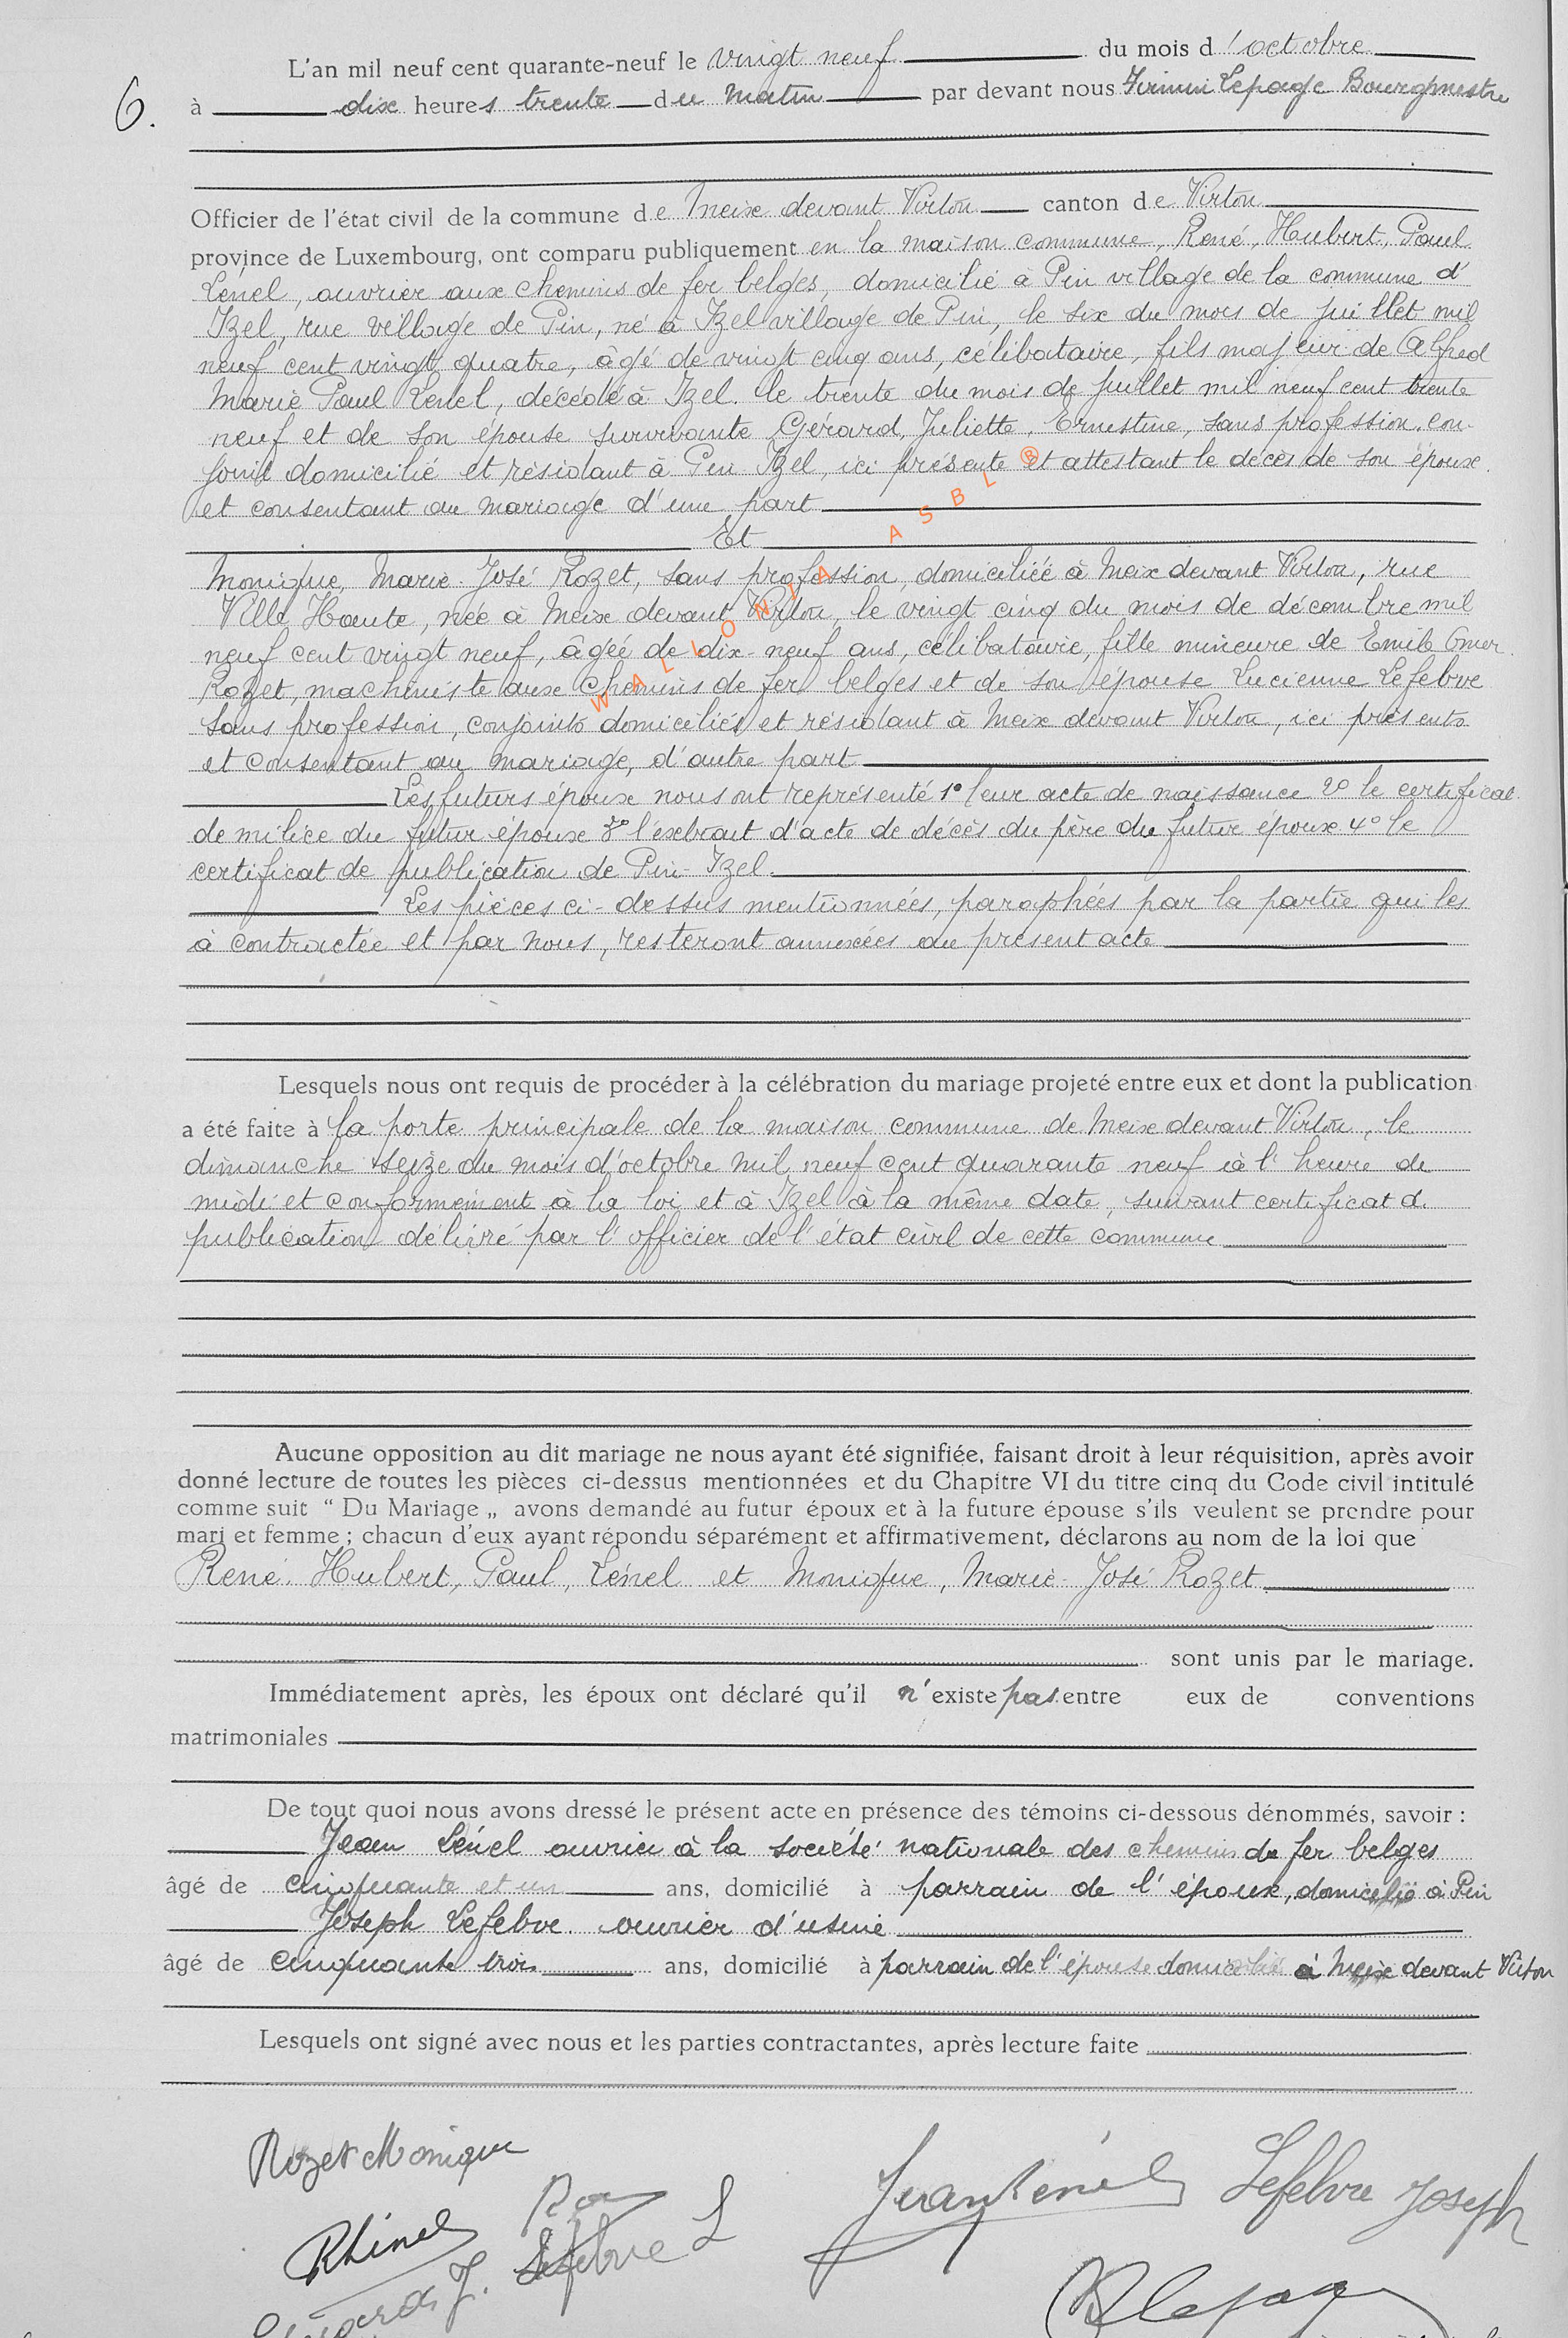 L'an mil neuf cent quarante-neuf le vingt neuf du mois d'octobre
6. à dix heures trente du matin par devant nous Firmin Lepage Bourgmestre
Officier de l'état civil de la commune de Meix devant Virton canton de Virton
province de Luxembourg, ont comparu publiquement en la maison commune, René, Hubert, Paul
Lénel, ouvrier aux chemins de fer belges, domicilié à Pin village de la commune d'
Izel, rue village de Pin, né à Izel village de Pin, le six du mois de juillet mil
neuf cent vingt quatre, âgé de vingt cinq ans, célibataire, fils majeur de Alfred
Marie Paul Lenel, décédé à Izel. le trente du mois de juillet mil neuf cent trente
neuf et de son épouse survivante Gérard, Juliette, Ernestine, sans profession, con-
joint domicilié et résidant à Pin Izel, ici présente et attestant le décès de son époux.
et consentant au mariage d'une part
Et
Monique, Marie-José Rozet, sans profession, domiciliée à Meix devant Virton, rue
Ville Haute, née à Meix devant Virton, le vingt cinq du mois de décembre mil
neuf cent vingt neuf, âgée de dix-neuf ans, célibataire, fille mineure de Emile Omer
Rozet, machiniste aux chemins de fer belges et de son épouse Lucienne Lefebvre
sans profession, conjoints domiciliés et résidant à Meix devant Virton, ici présents
et consentant au mariage, d'autre part
Les futurs époux nous ont représenté 1° leur acte de naissance 2° le certificat
de milice du futur époux 3° l'extrait d'acte de décès du père du futur époux 4° le
certificat de publication de Pin-Izel.
Les pièces ci-dessus mentionnées, paraphées par la partie qui les
à contractée et par nous, resteront annexées au présent acte
Lesquels nous ont requis de procéder à la célébration du mariage projeté entre eux et dont la publication
a été faite à la porte principale de la maison commune de Meix devant Virton, le
dimanche seize du mois d'octobre mil neuf cent quarante neuf à l'heure de
midi et conformément à la loi et à Izel à la même date, suivant certificat d.
publication délivré par l'officier de l'état civil de cette commune
Aucune opposition au dit mariage ne nous ayant été signifiée, faisant droit à leur réquisition, après avoir
donné lecture de toutes les pièces ci-dessus mentionnées et du Chapitre VI du titre cinq du Code civil intitulé
comme suit “ Du Mariage „ avons demandé au futur époux et à la future épouse s'ils veulent se prendre pour
mari et femme ; chacun d'eux ayant répondu séparément et affirmativement, déclarons au nom de la loi que
René, Hubert, Paul, Lénel et Monique, Marie-José Rozet
sont unis par le mariage.
Immédiatement après, les époux ont déclaré qu'il n'existe pas entre eux de conventions
matrimoniales
De tout quoi nous avons dressé le présent acte en présence des témoins ci-dessous dénommés, savoir :
Jean Lénel ouvrier à la société nationale des chemins de fer belges
âgé de cinquante et un ans, domicilié à parrain de l'époux, domicilié à Pin
Joseph Lefebvre. ouvrier d'usine
âgé de cinquante trois ans, domicilié à parrain de l'épouse domicilié à Meix devant Virton
Lesquels ont signé avec nous et les parties contractantes, après lecture faite
Rozet Monique
Jean Lénel Lefebvre Joseph
RLénel
Lefebvre L
Gérard J.
Lepage
WALLONIA ASBL ®